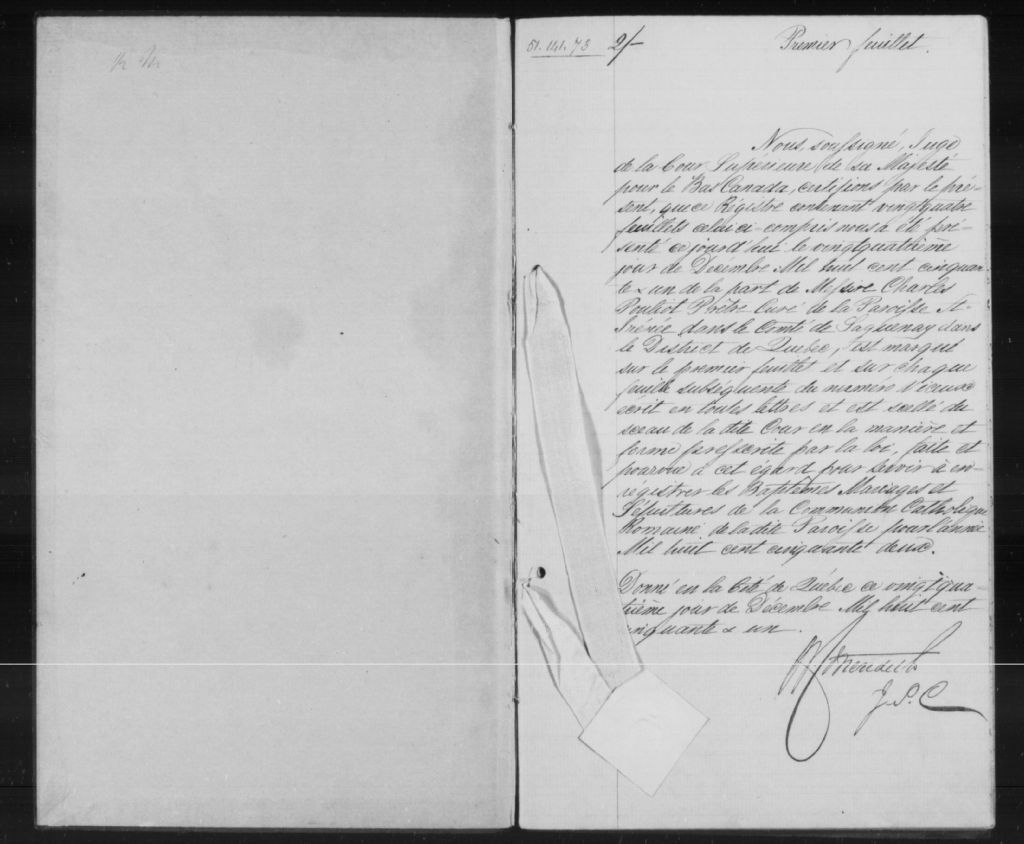 51. 141. 73 2/-
Premier feuillet.
Nous, soussigné, Juge
de la Cour Supérieure de sa Majesté
pour le Bas Canada, certifions par le pré-
sent, que ce Régistre contenant vingtquatre
feuillets celui ci compris nous a été pré-
senté ce jourd'hui le vingtquatrième
jour de Décembre Mil huit cent cinquan-
te & un de la part de Messire Charles
Pouliot Prêtre Curé de la Paroisse St
Irénée dans le Comté de Saguenay dans
le District de Québec, est marqué
sur le premier feuillet et sur chaque
feuille subséquente du numéro d'iceux
écrit en toutes lettres et est scellé du
sceau de la dite Cour en la manière et
forme prescrite par la loi, faite et
pourvue à cet égard pour servir à en-
régistrer les Baptêmes Mariages et
Sépultures de la Communion Catholique
Romaine de la dite Paroisse pour l'année
Mil huit cent cinquante deux.
Donné en la Cité de Québec ce vingtqua-
trième jour de Décembre Mil huit cent
cinquante & un.
Meredith
J. S. C